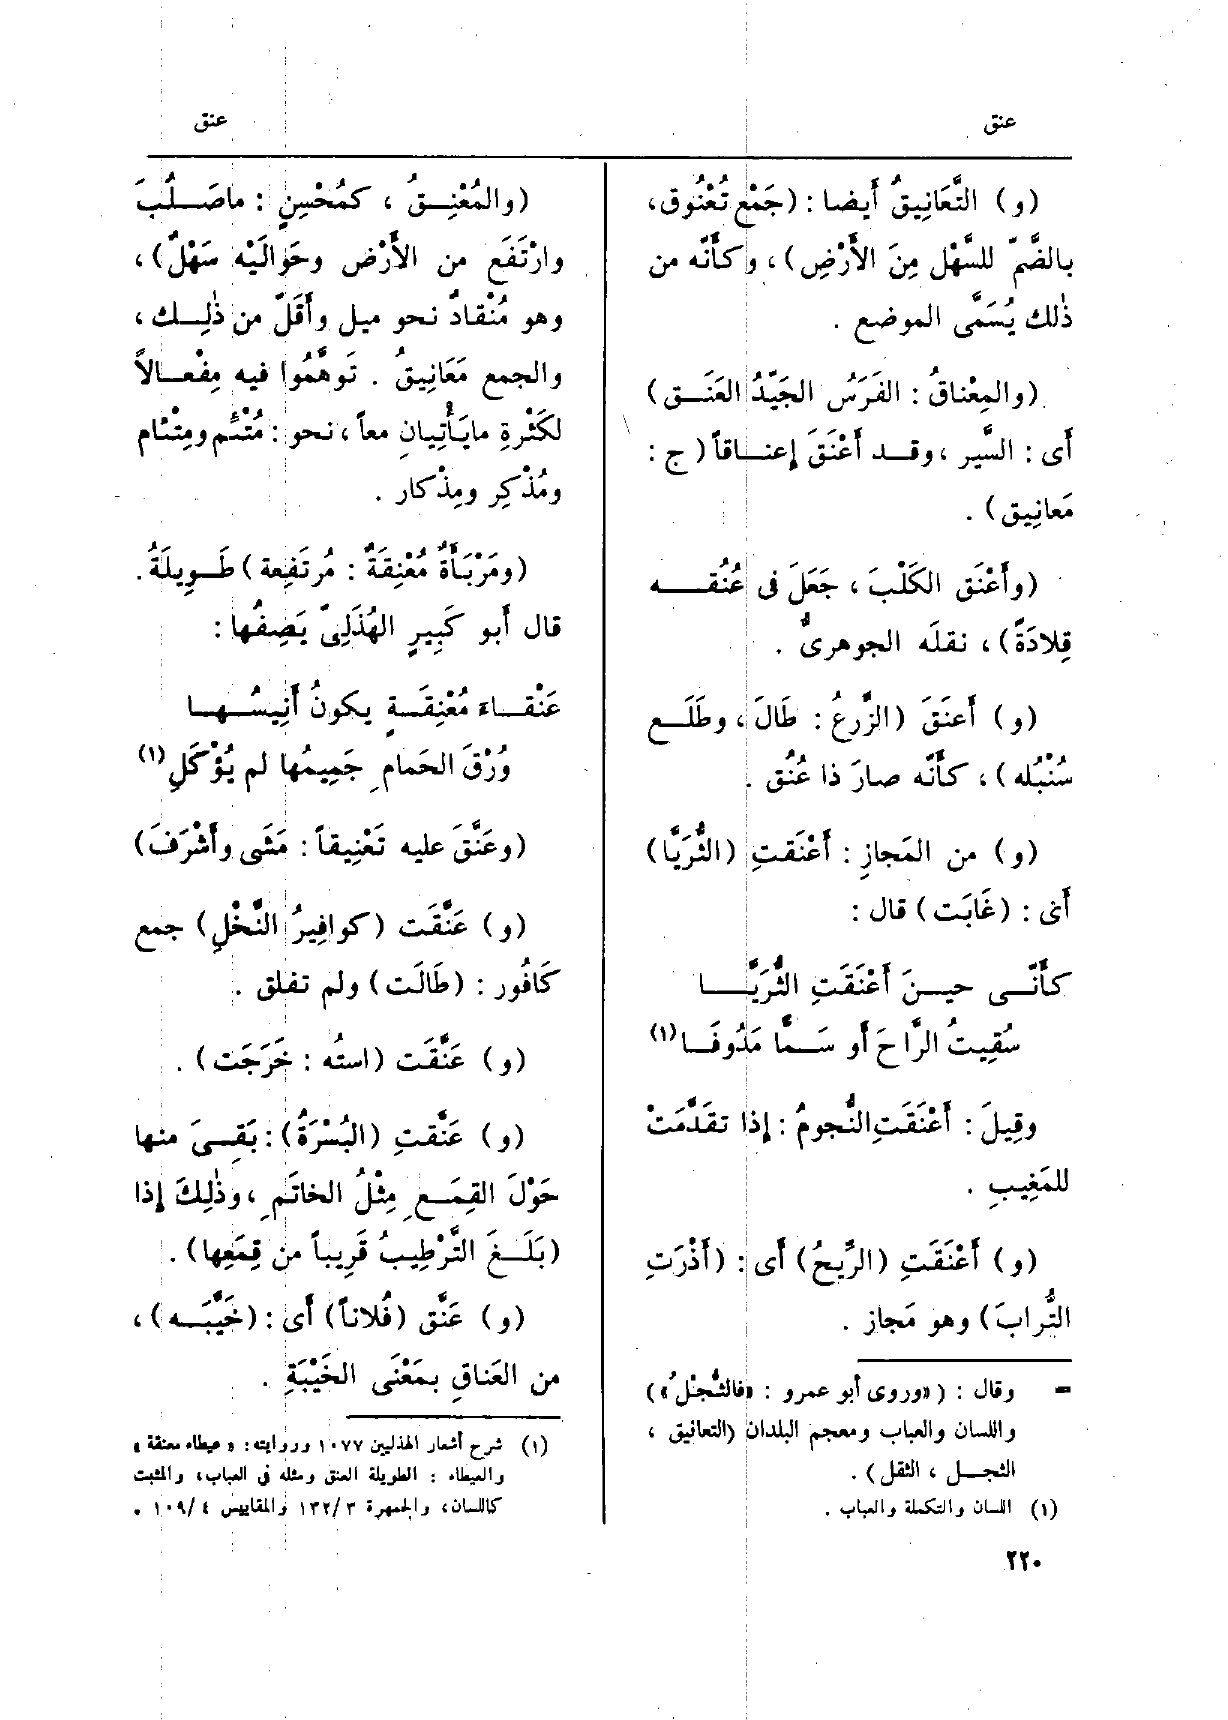 عنق
عنق
(و) التَّعَانِيقُ أَيضا : (جَمْع تُعْنُوق،
بالضَّمّ للسَّهْل مِنَ الأَرْضِ) ، وكأَنَّه من
ذٰلك يُسَمَّى الموضع .
(والمِعْناقُ : الفَرَسُ الجَيِّدُ العَنَــق)
أَى : السَّير ، وقــد أَعْنَقَ إعنــاقاً ( ج :
مَعانِيق) .
(وأَعْنَق الكَلْبَ ، جَعَلَ فى عُنُقــه
قِلادَةً) ، نقلَه الجوهرىُّ .
(و) أَعنَقَ (الزَّرعُ : طَالَ ، وطَلَــع
سُنْبُله ) ، كأَنَّه صارَ ذا عُنُق .
(و) من المَجازِ : أَعْنَقتِ (الثُّرَيَّا)
أَى : (غَابَت) قال :
كأَنّــى حيــنَ أَعْنَقَتِ الثُّرَيَّــا
سُقِيتُ الرَّاحَ أَو سَــمًّا مَدُوفَــا (١)
وقِيلَ : أَعْنَقَتِ النُّجومُ : إذا تقدَّمَتْ
للمَغِيبِ .
(و) أَعْنَقَتِ (الرِّيحُ) أَى : (أَذْرَتِ
التُّرابَ) وهو مَجاز .
= وقال : («وروى أبو عمرو : «فالثُّجْلُ»)
واللسان والعباب ومعجم البلدان (التعانيق ،
الثجــل ، الثقل) .
(١) اللسان والتكملة والعباب .
(والمُعْنِــقُ ، كمُحْسِنٍ : ماصَــلُبَ
وارْتَفَع من الأَرْض وحَوالَيْه سَهْلٌ) ،
وهو مُنْقادٌ نحو ميل وأَقَلّ من ذٰلِــك ،
والجمع مَعَانِيقُ . تَوهَّمُوا فيه مِفْعــالاً
لكَثْرةِ مايَأْتِيانِ معاً ، نحو : مُتْئم ومِتْئام
ومُذْكِر ومِذْكار .
(ومَرْبَأَةٌ مُعْنِقَةٌ : مُرتَفِعة ) طَــوِيلَةُ .
قال أَبو كَبِيرٍ الهُذَلِىّ يَصِفُها :
عَنْقــاءَ مُعْنِقَــةٍ يكونُ أَنِيسُــهــا
وُرْقَ الحَمامِ جَمِيمُها لم يُؤْكَلِ (١)
(وعَنَّقَ عليه تَعْنِيقاً : مَشَى وأَشْرَفَ)
(و) عَنَّقَت (كوافِيرُ النَّخْلِ) جمع
كَافُور : (طَالَت) ولم تفلق .
(و) عَنَّقَت (استُه : خَرَجَت) .
(و) عَنَّقتِ (البُسْرَةُ) : بَقِىَ منها
حَوْلَ القِمَــعِ مِثْلُ الخاتَمِ ، وذٰلِكَ إذا
(بَلَــغَ التَّرْطِيبُ قَرِيباً من قِمَعِها) .
(و) عَنَّق (فُلاناً) أَى : (خَيَّبَــه) ،
من العَناقِ بمَعْنَى الخَيْبَةِ .
(١) شرح أشعار الهذليين ١٠٧٧ وروايته : «عيطاء معنقة»
والعيطاء : الطويلة العنق ومثله فى العباب، والمثبت
كاللسان، والجمهرة ١٣٢/٣ والمقاييس ١٠٩/٤ .
٢٢٠